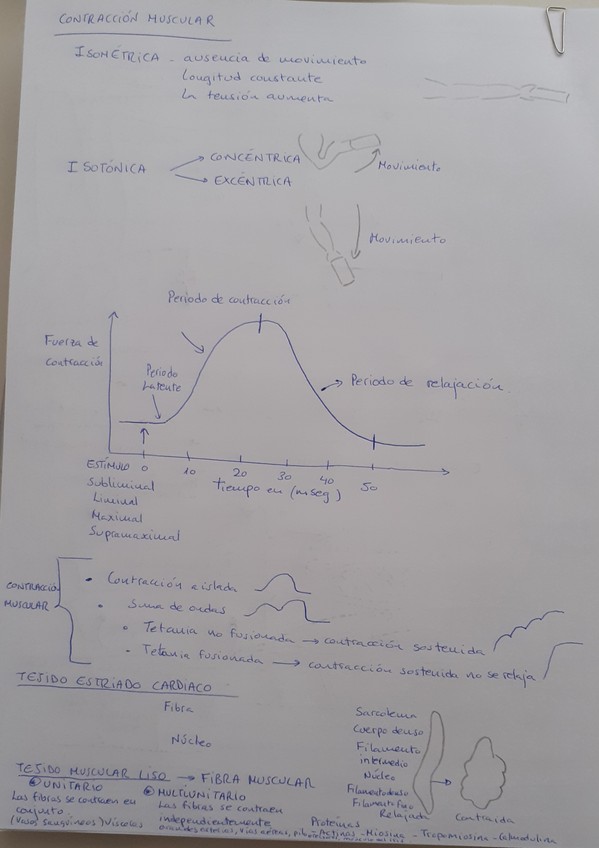 CONTRACCIÓN MUSCULAR
ISOMÉTRICA - ausencia de movimiento
Longitud constante
La tensión aumenta
ISOTÓNICA
CONCÉNTRICA
Movimiento
EXCÉNTRICA
Movimiento
Periodo de contracción
Fuerza de
contracción
Periodo
Latente
Periodo de relajación
ESTÍMULO 0 10 20 30 40 50
Subliminal
tiempo en (mseg)
Liminal
Maximal
Supramaximal
CONTRACCIÓN
MUSCULAR
• Contracción aislada
• Suma de ondas
• Tetania no fusionada → contracción sostenida
• Tetania fusionada → contracción sostenida no se relaja
TEJIDO ESTRIADO CARDIACO
Fibra
Núcleo
Sarcolema
Cuerpo denso
Filamento
intermedio
Núcleo
Filamento grueso
Filamento fino
Relajada
Contraida
TEJIDO MUSCULAR LISO → FIBRA MUSCULAR
UNITARIO
Las fibras se contraen en
conjunto.
(Vasos sanguineos) Vísceras
MULTIUNITARIO
Las fibras se contraen
independientemente
grandes arterias, vias aéreas,
Proteinas
- Actina - Miosina - Tropomiosina - Calmodulina